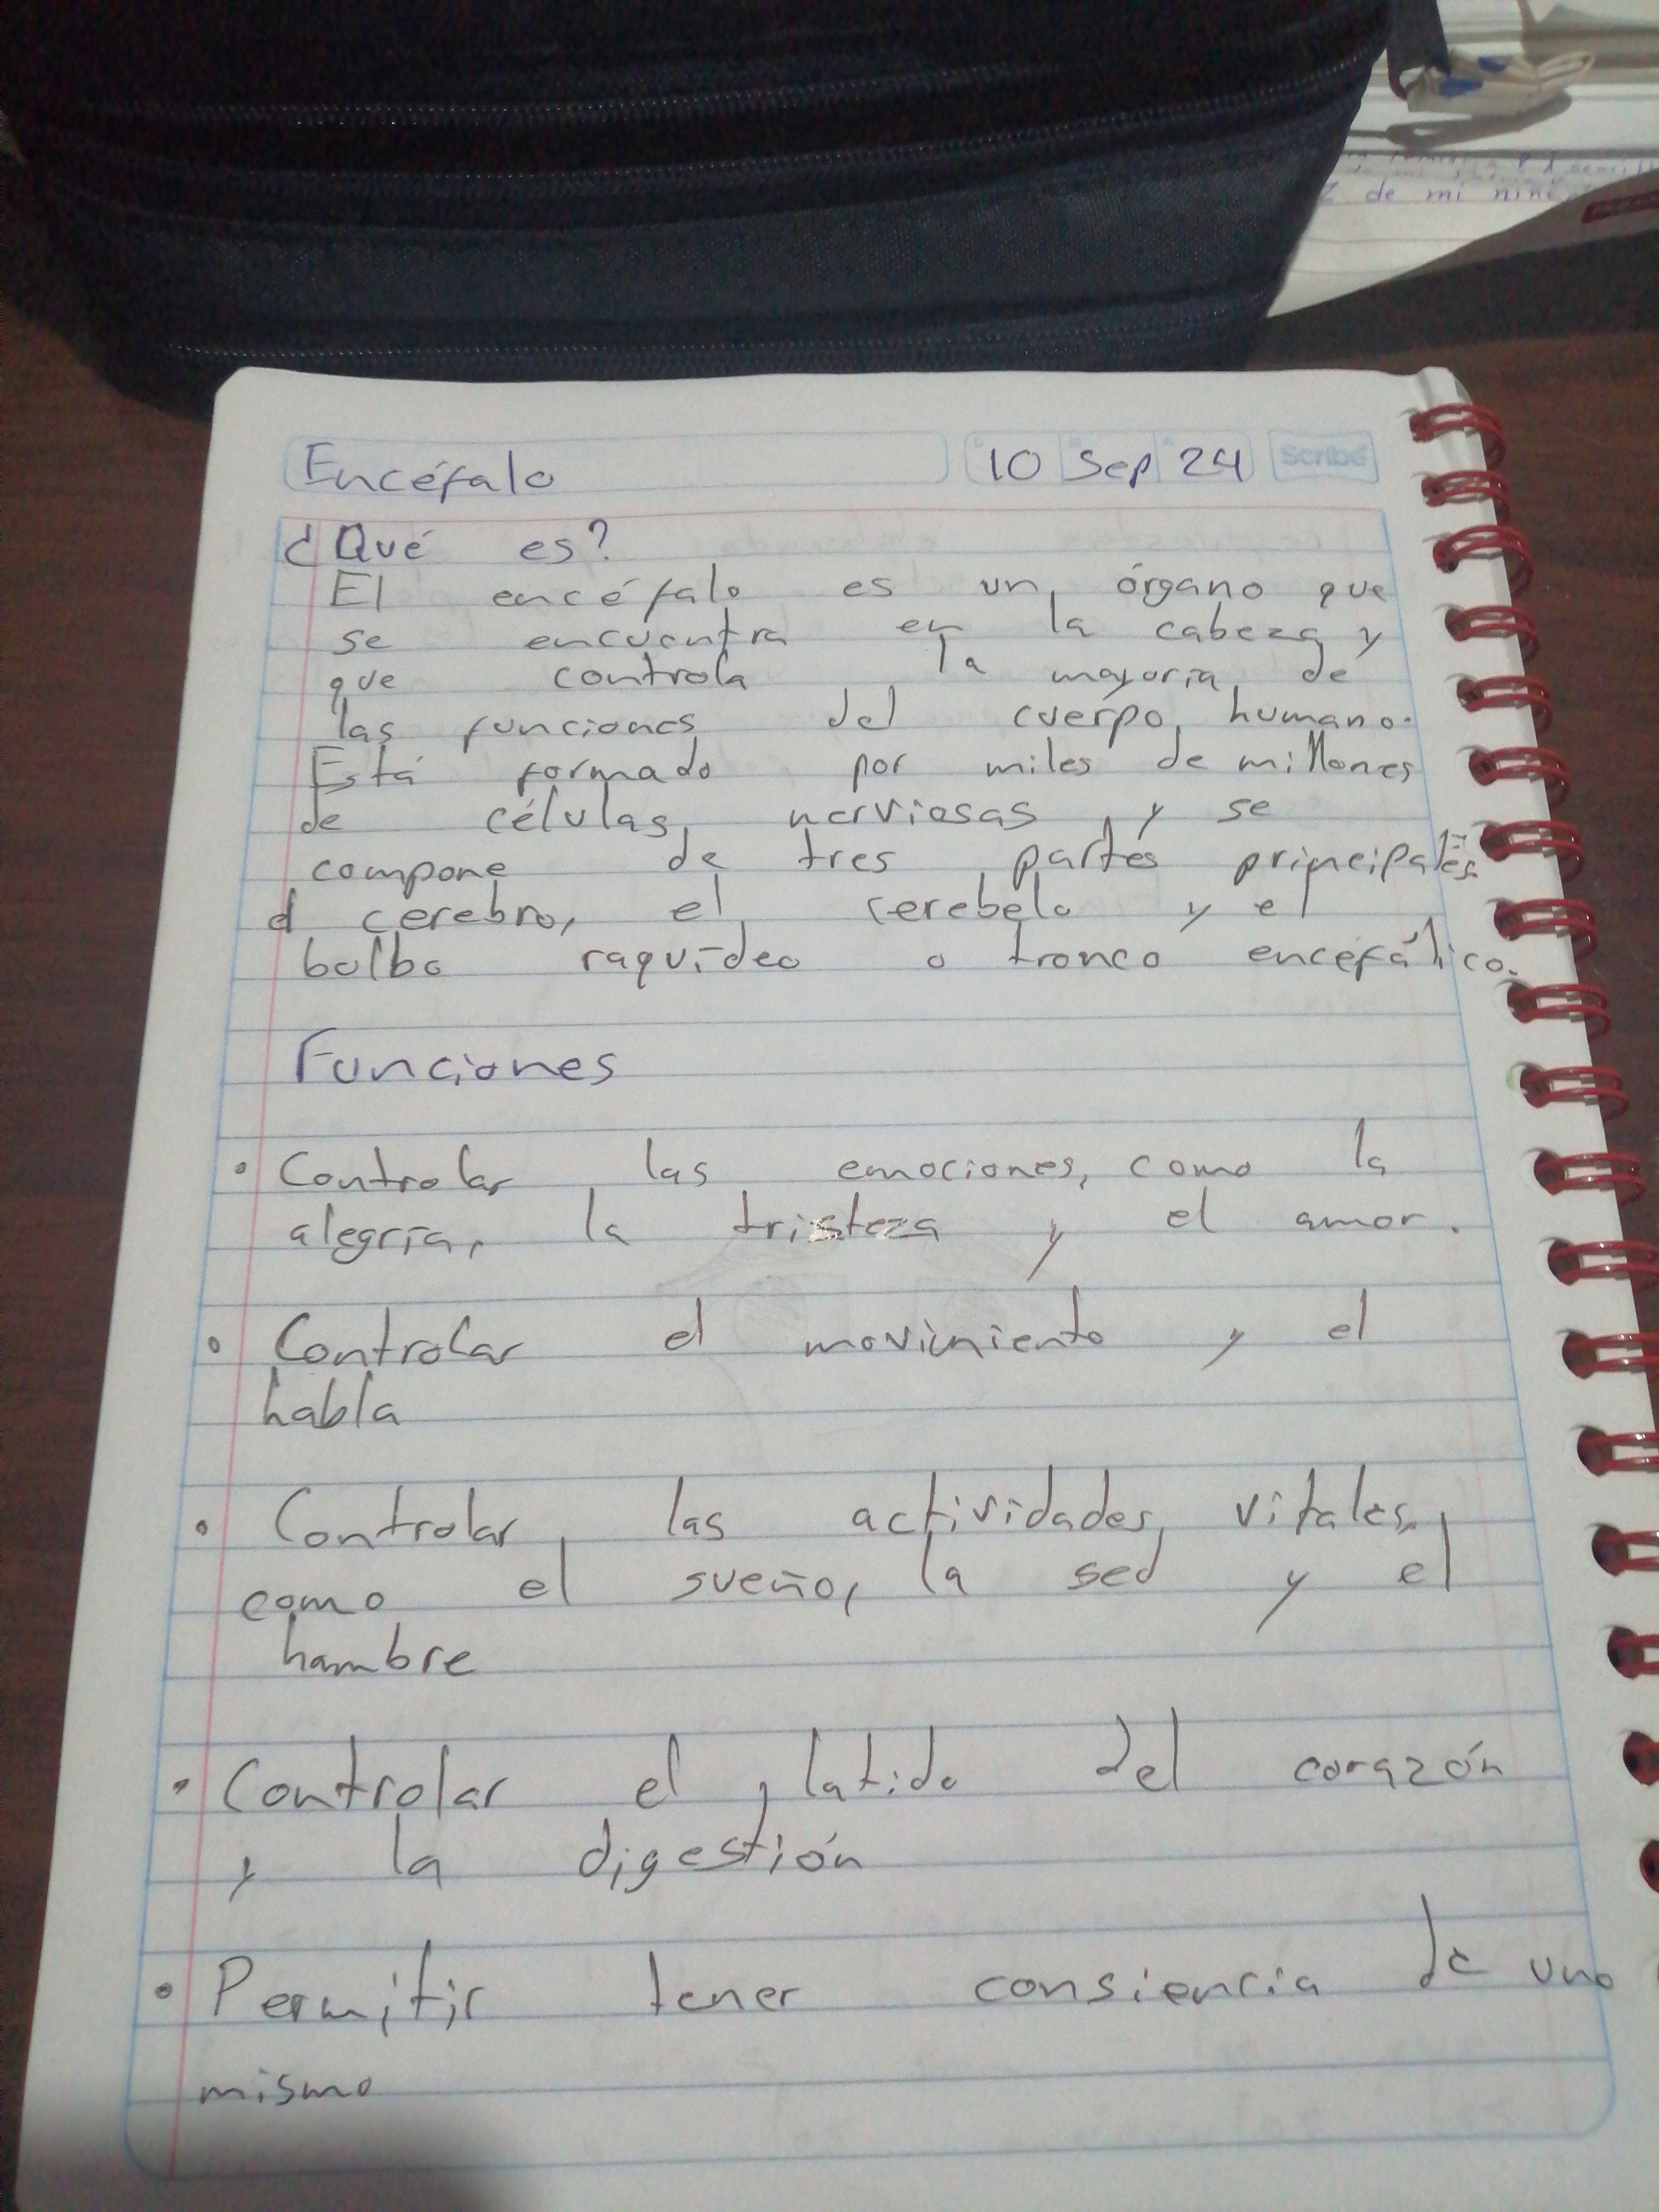 de mi niñe
Encéfalo
10 Sep 24
Scribe
¿Qué es?
El encéfalo es un órgano que
se encuentra en la cabeza y
que controla la mayoría de
las funciones del cuerpo humano.
Está formado por miles de millones
de células nerviosas y se
compone de tres partes principales
el cerebro, el cerebelo y el
bulbo raquídeo o tronco encefálico.
Funciones
• Controlar las emociones, como la
alegría, la tristeza y el amor.
• Controlar el movimiento y el
habla
• Controlar las actividades vitales,
como el sueño, la sed y el
hambre
• Controlar el latido del corazón
y la digestión
• Permitir tener consiencia de uno
mismo